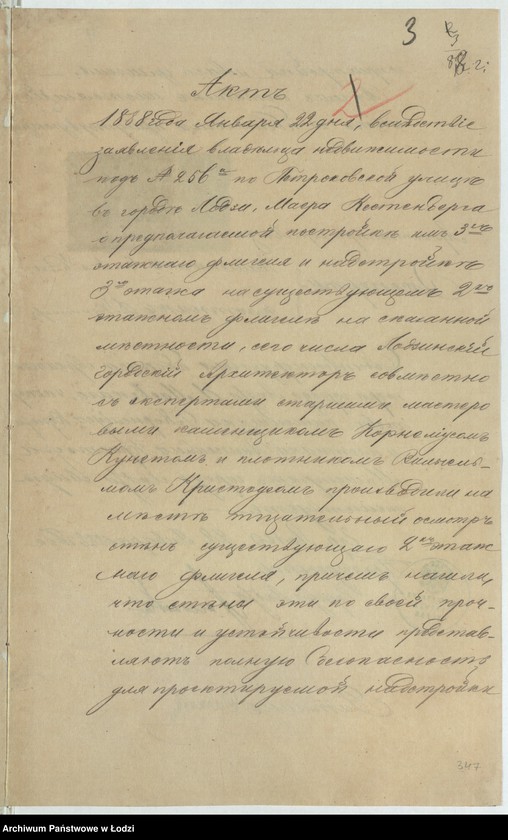 3
2
Актъ
1888 года Января 22 дня, вслѣдствіе
заявленія владѣльца недвижимости
подъ № 256 по Петроковской улицѣ
въ городѣ Лодзи, Маера Костенберга
о предполагаемой постройкѣ имъ 3хъ
этажнаго флигеля и надстройкѣ
3го этажа на существующемъ 2хъ
этажномъ флигелѣ на сказанной
мѣстности, сего числа Лодзинскій
Городской Архитекторъ совмѣстно
съ экспертами старшими мастеро
выми каменщикомъ
и плотникомъ Вильгель-
момъ произвели на
мѣстѣ тщательный осмотръ
стѣнъ существующаго 2хъ этаж
наго флигеля, причемъ нашли,
что стѣны эти по своей проч-
ности и устойчивости представ-
ляютъ полную безопасность
для проектируемой надстройки
347
Archiwum Państwowe w Łodzi